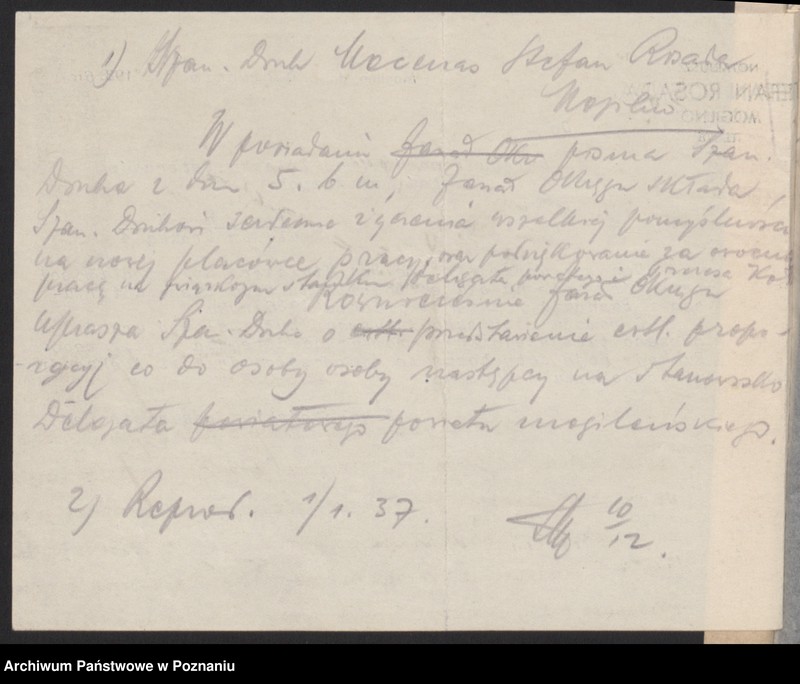 1) Szan. Druh Mecenas Stefan Rosada
Mogilno
W posiadaniu Zarząd Okr. pisma Szan.
Druha z dnia 5. b m, Zarząd Okręgu składa
Szan. Druhowi serdeczne życzenia wszelkiej pomyślności
na nowej placówce pracy, oraz podziękowanie za owocną
pracę na stanowisku Delegata powiatu i prezesa
Równocześnie Zarząd Okręgu
uprasza Szan. Druha o przedstawienie cntl. propo-
zycyj co do osoby osoby następcy na stanowisko
Delegata powiatowego powiatu mogileńskiego.
2) Reprod. 1/1. 37.
10/12.
NOTARIUSZ
STEFAN ROSADA
MOGILNO
Archiwum Państwowe w Poznaniu